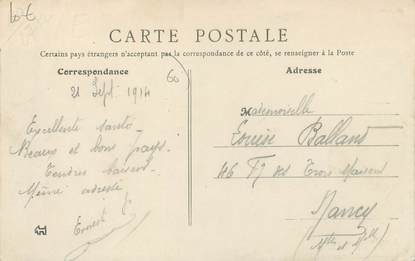 10 €
CARTE POSTALE
Certains pays étrangers n'acceptant pas la correspondance de ce côté, se renseigner à la Poste
Correspondance
Adresse
21 Sept 1914
60
Excellente santé
Béarn et bons pays.
Tendres baisers.
Même adresse
Ernest
Mademoiselle
Louise Balland
46 Fg des Trois Maisons
Nancy
(Mthe et Mlle)